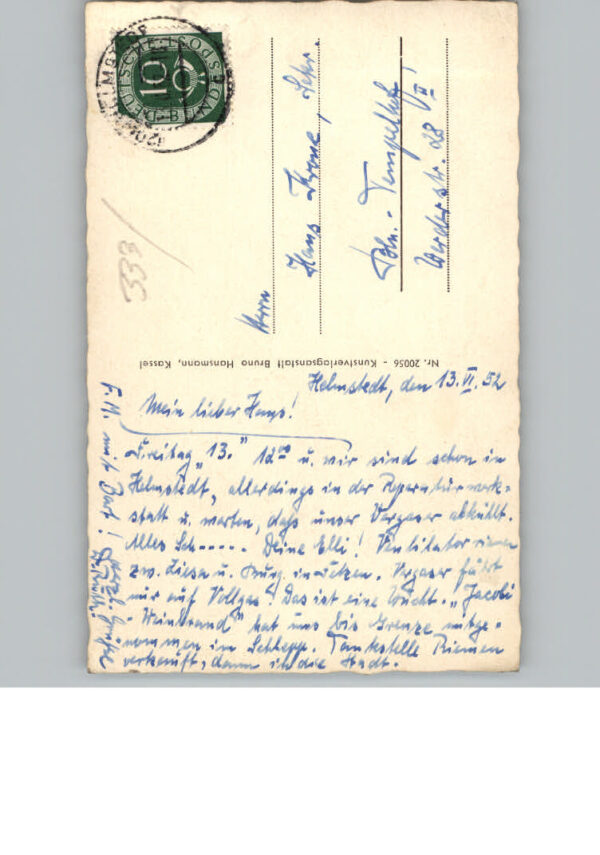 DEUTSCHE BUNDESPOST
10
HELMSTEDT
333
Herrn
Hans Krone,
Bln.-Tempelhof
Werderstr. 28 VII!
Nr. 20056 - Kunstverlagsanstalt Bruno Hansmann, Kassel
Helmstedt, den 13.VI.52
Mein lieber Hans!
Freitag „13." 12⁰⁰ u. wir sind schon in
Helmstedt, allerdings in der Reparaturwerk-
statt u. warten, daß unser Vergaser abkühlt.
Alles Sch----- Deine Elli! Ventilatorriemen
zw. u. in Fetzen. Vergaser fährt
nur auf Vollgas! Das ist eine Wucht. „Jacobi
- Weinbrand" hat uns bis Grenze mitge-
nommen im Schlepp. Tankstelle Riemen
verkauft, dann in die Stadt.
F. M. mit Dank! Herzl. Grüße